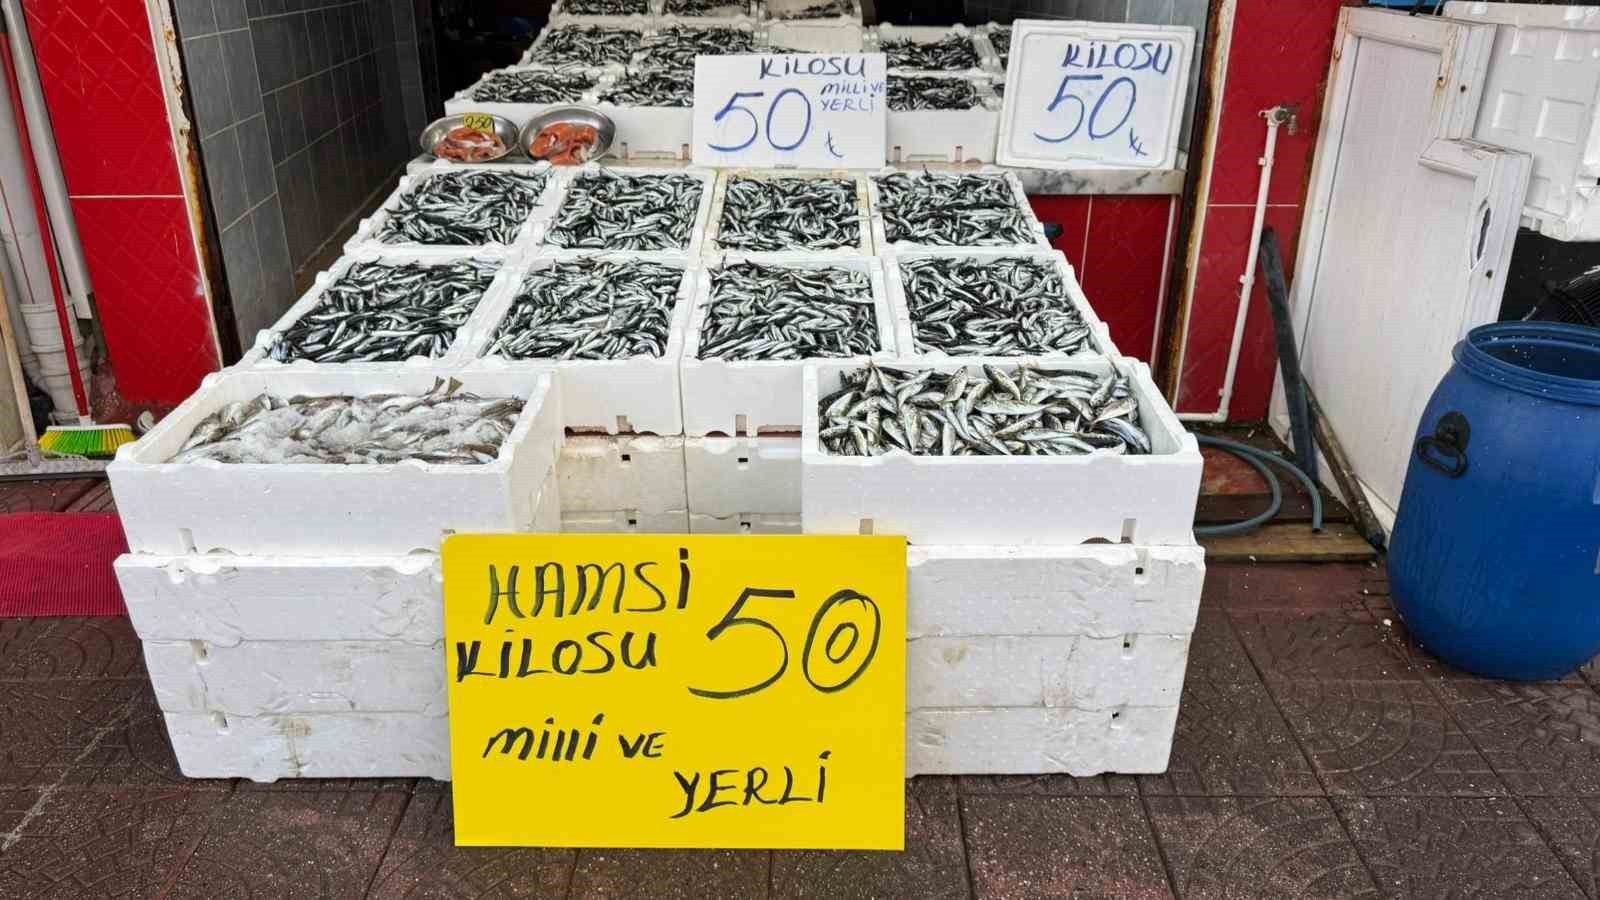 KİLOSU
50 ₺
MİLLİ VE
YERLİ
KİLOSU
50 ₺
250
HAMSİ
KİLOSU
50
milli VE
YERLİ